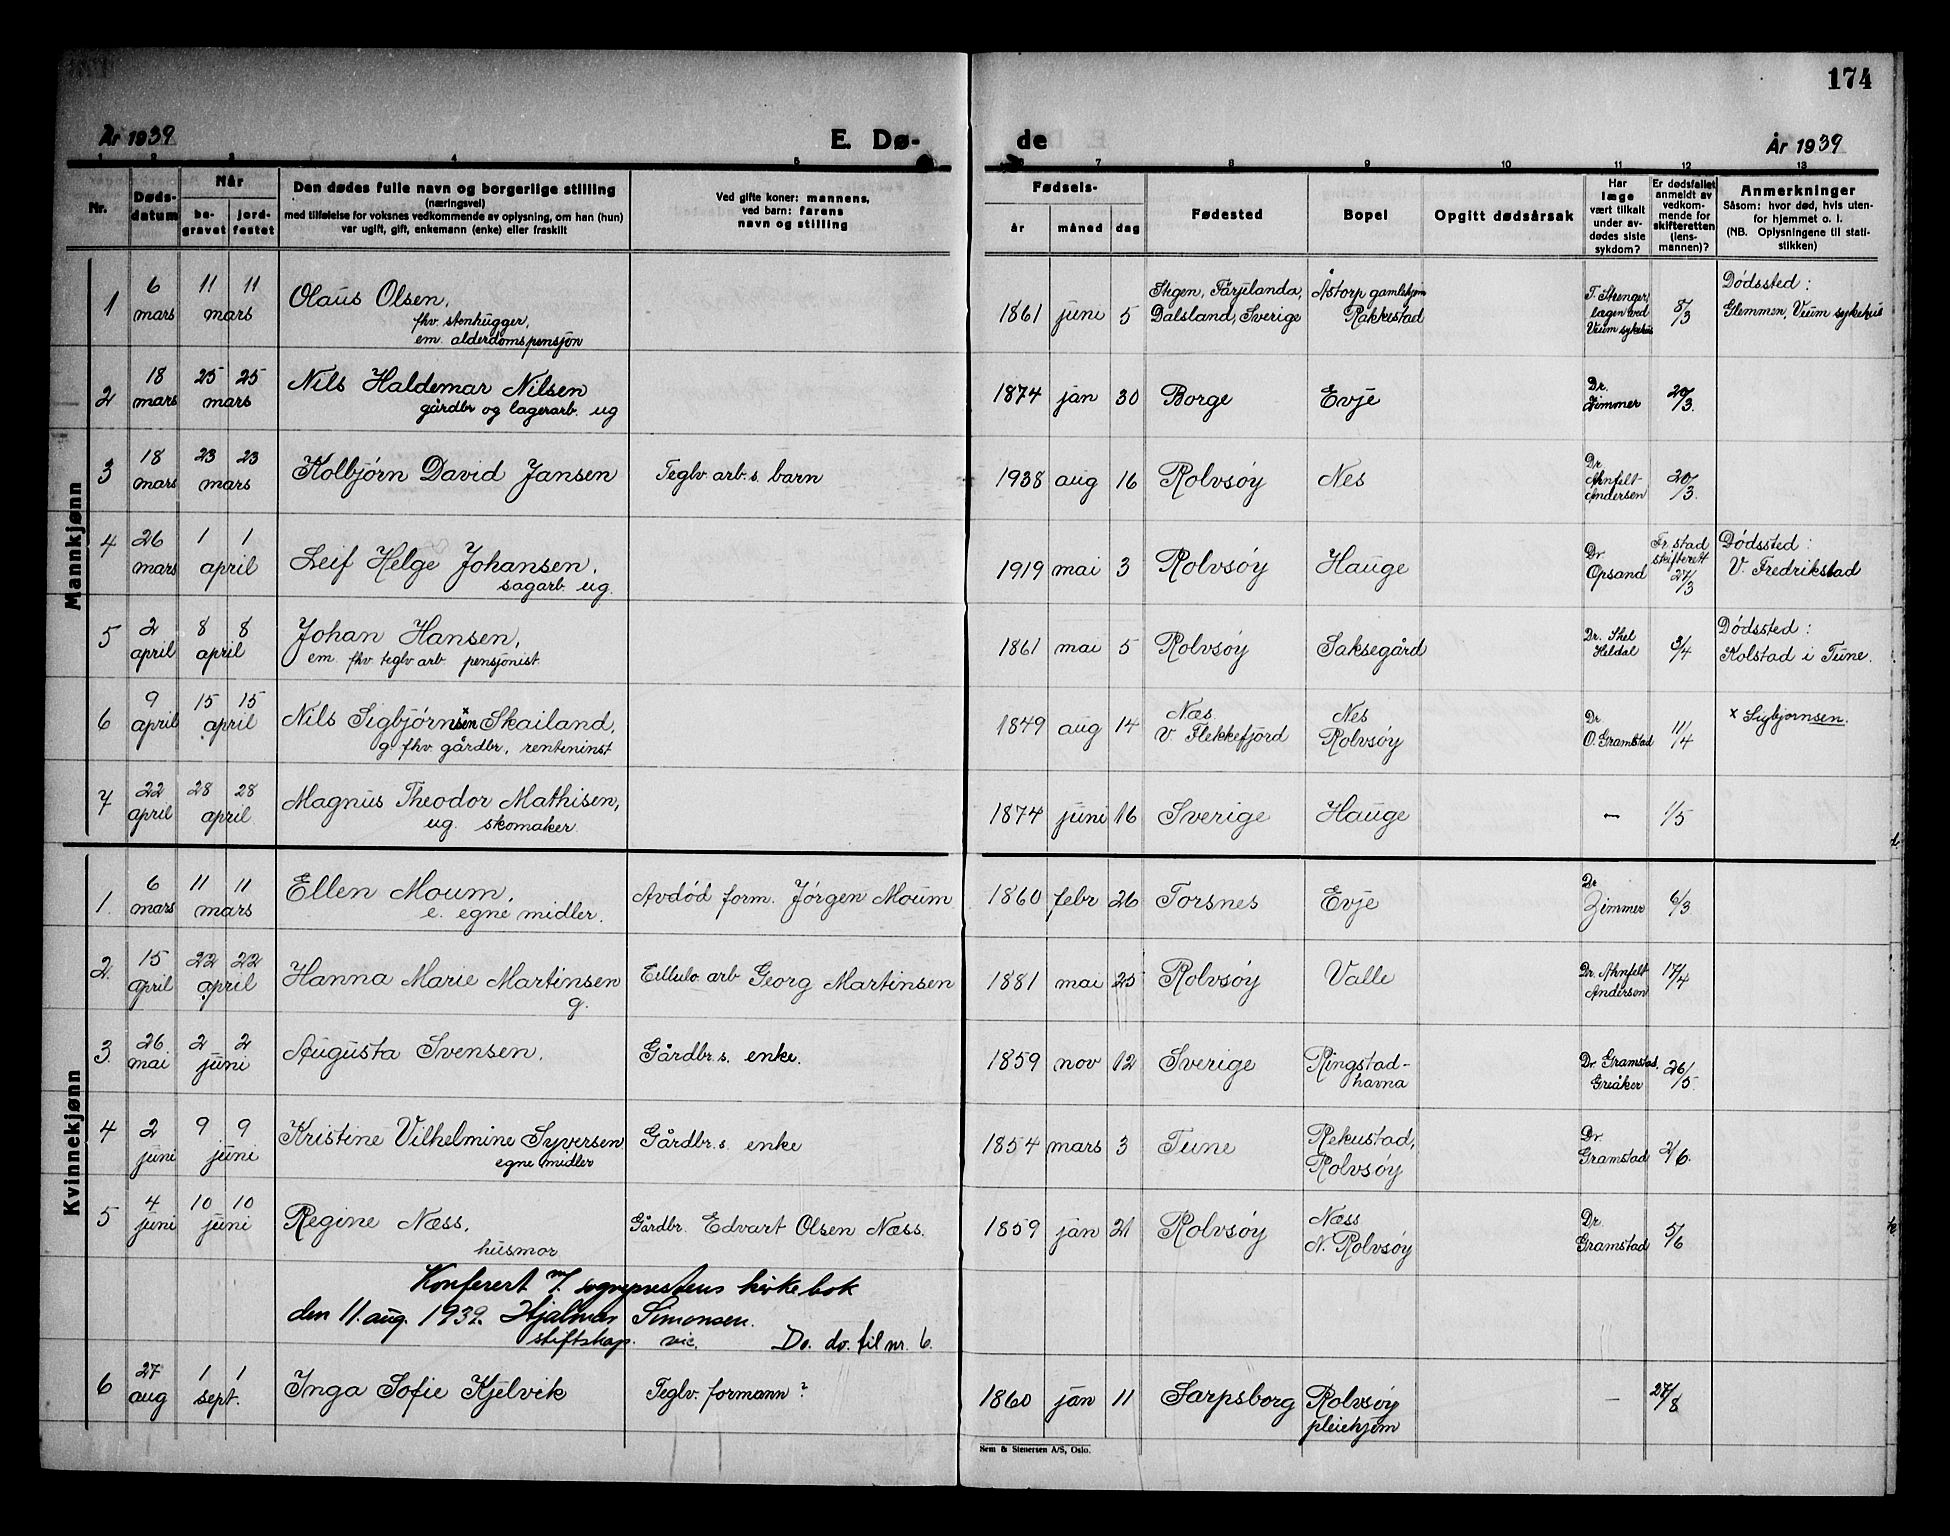 174
År 1939
E. Dø-
de
År 1939
1 2 3 4 5
6 7 8 9 10 11 12 13
Nr.
Døds-
datum
Når
be-
gravet
jord-
festet
Den dødes fulle navn og borgerlige stilling
(næringsvei)
med tilføielse for voksnes vedkommende av oplysning, om han (hun)
var ugift, gift, enkemann (enke) eller fraskilt
Ved gifte koner: mannens,
ved barn: farens
navn og stilling
Fødsels-
år
måned
dag
Fødested
Bopel
Opgitt dødsårsak
Har
læge
vært tilkalt
under av-
dødes siste
sykdom?
Er dødsfallet
anmeldt av
vedkom-
mende for
skifteretten
(lens-
mannen)?
Anmerkninger
Såsom: hvor død, hvis uten-
for hjemmet o. l.
(NB. Oplysningene til stati-
stikken)
Mannkjønn
1
6
mars
11 11
mars
Olaus Olsen,
fhv. stenhugger,
em. alderdomspensjon
1861 juni 5
Stigen, Färjelanda,
Dalsland, Sverige
Åstorp gamlehjem
Rakkestad
T. Stenger
lægen ved
Veum sykehus
8/3
Dødssted:
Glemmen, Veum sykehus
2
18
mars
25 25
mars
Nils Haldemar Nilsen
gårdbr og lagerarb. ug
1874 jan 30
Borge
Evje
Dr.
Zimmer
20/3.
3
18
mars
23 23
mars
Kolbjørn David Jansen
Teglv. arb.s. barn
1938 aug 16
Rolvsøy
Nes
Dr
Ahnfelt-
Andersen
20/3.
4
26
mars
1 1
april
Leif Helge Johansen,
sagarb. ug.
1919 mai 3
Rolvsøy
Hauge
Dr
Opsand
Fr.stad
skifterett
27/3
Dødssted:
V. Fredrikstad
5
2
april
8 8
april
Johan Hansen,
em. fhv teglv arb pensjonist
1861 mai 5
Rolvsøy
Saksegård
Dr. Skel
Heldal
3/4
Dødssted:
Kolstad i Tune.
6
9
april
15 15
april
Nils Sigbjørnsen x Skailand,
g fhv. gårdbr, renteninst
1849 aug 14
Næs
V. Flekkefjord
Nes
Rolvsøy
Dr
O. Gramstad
11/4
x Sigbjørnsen.
7
22
april
28 28
april.
Magnus Theodor Mathisen,
ug. skomaker.
1874 juni 16
Sverige
Hauge
—
1/5
Kvinnekjønn
1.
6
mars
11 11
mars
Ellen Moum,
e. egne midler.
Avdød form. Jørgen Moum
1860 febr 26
Torsnes
Evje
Dr
Zimmer
6/3
2.
15
april
22 22
april
Hanna Marie Martinsen
g.
Cellulo arb Georg Martinsen
1881 mai 25
Rolvsøy
Valle
Dr. Ahnfelt
Andersen
17/4
3.
26
mai
2 2
juni
Augusta Svensen.
Gårdbr.s. enke.
1859 nov 12
Sverige
Ringstad-
havna
Dr. Gramstad,
Greåker
26/5.
4
2
juni
9 9
juni
Kristine Vilhelmine Syversen
egne midler
Gårdbr.s. enke
1854 mars 3
Tune
Rekustad,
Rolvsøy
Dr.
Gramstad
2/6.
5
4
juni
10 10
juni
Regine Næss,
husmor
Gårdbr. Edvart Olsen Næss.
1859 jan 21
Rolvsøy
Næss
N. Rolvsøy
Dr.
Gramstad
5/6
Konferert m/. sogneprestens kirkebok
den 11. aug. 1939. Hjalmar Simonsen.
stiftskap. vic. Do. do. til nr. 6.
6
27
aug
1 1
sept.
Inga Sofie Kjelvik
Teglv. formann?
1860 jan 11
Sarpsborg
Rolvsøy
pleiehjem
—
27/8
Sem & Stenersen A/S, Oslo.